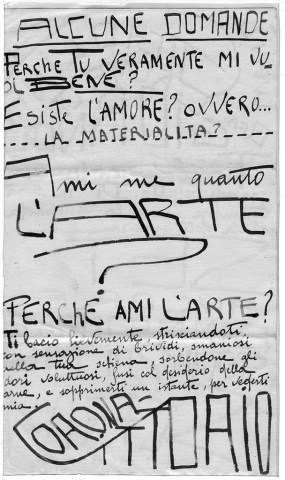 ALCUNE DOMANDE
PERCHE TU VERAMENTE MI VU_
OL BENE?
ESISTE L'AMORE? OVVERO...
LA MATERIALITA?
Ami me quanto
L'ARTE
?
PERCHÉ AMI L'ARTE?
Ti bacio lievemente, strisciandoti
con sensazione di brividi, smaniosi
sulla tua schiena, sorbendone gli
odori voluttuosi, fusi col desiderio della
carne, e sopprimerti un istante, per vederti
mia.
CORONA-
VITTORIO